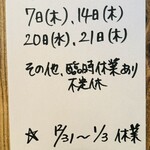 7日(木)、14日(木)
20日(水)、21日(木)
その他、臨時休業あり
不定休
☆ 12/31～1/3 休業